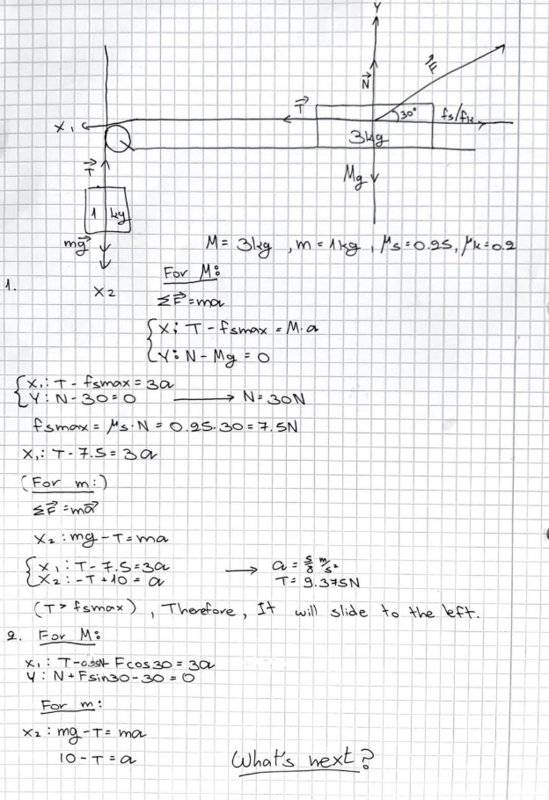 Y
N
F
T
30°
fs/fk
X₁
3kg
T
Mg
1 kg
mg
X2
M = 3kg, m = 1kg, μs = 0.25, μk = 0.2
1.
For M:
ΣF = ma
X: T - fsmax = M.a
Y: N - Mg = 0
X₁: T - fsmax = 3a
Y: N - 30 = 0 → N = 30N
fsmax = μs · N = 0.25 · 30 = 7.5N
X₁: T - 7.5 = 3a
(For m:)
ΣF = ma
X2: mg - T = ma
X₁: T - 7.5 = 3a → a = 5/8 m/s²
X2: -T + 10 = a T = 9.375N
(T > fsmax), Therefore, It will slide to the left.
2. For M:
X₁: T - Fcos30 = 3a
Y: N + Fsin30 - 30 = 0
For m:
X2: mg - T = ma
10 - T = a
What's next?